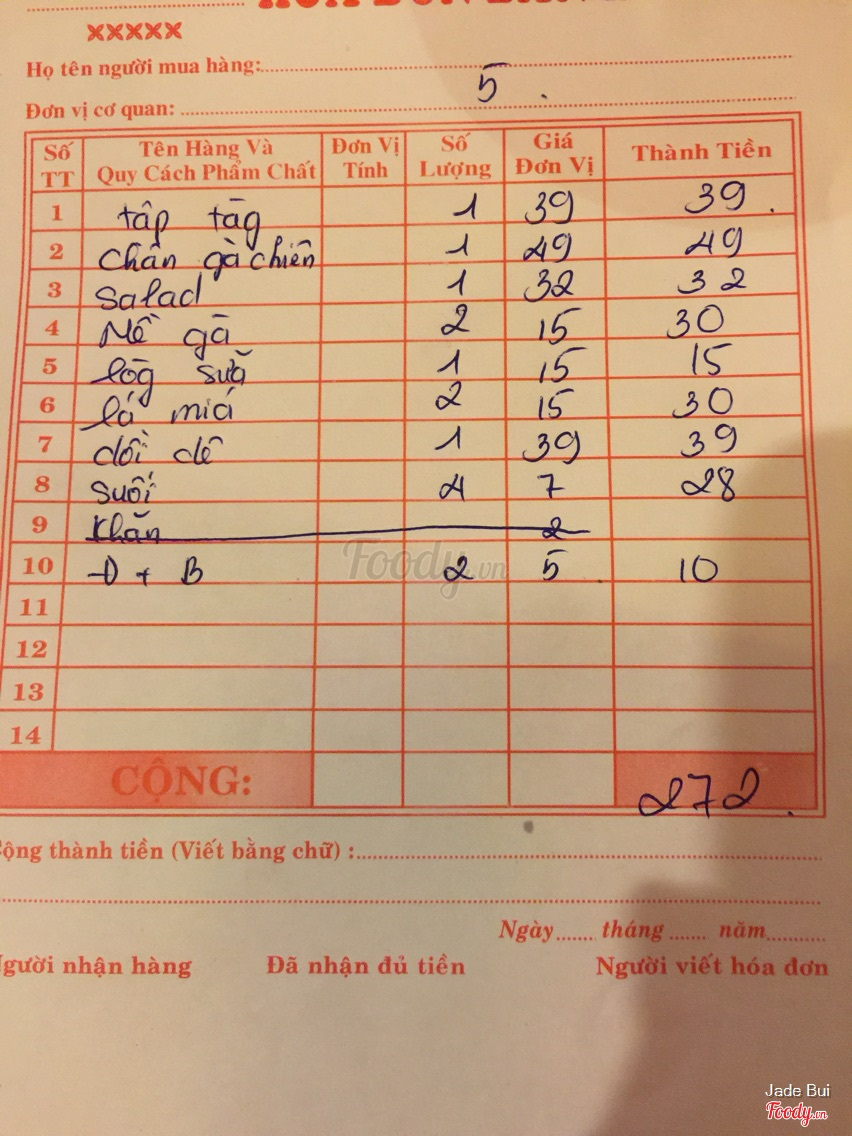 HÓA ĐƠN BÁN
XXXXX
Họ tên người mua hàng:
5.
Đơn vị cơ quan:
Số TT Tên Hàng Và Quy Cách Phẩm Chất Đơn Vị Tính Số Lượng Giá Đơn Vị Thành Tiền
1 tâp tāg 1 39 39.
2 chân gà chiên 1 49 49
3 Salad 1 32 32
4 Mề gà 2 15 30
5 lōg sữa 1 15 15
6 lá mía 2 15 30
7 dồi dê 1 39 39
8 Suối 4 7 28
9 Khăn 2
10 Đ + B 2 5 10
11
12
13
14
CỘNG: 272.
Cộng thành tiền (Viết bằng chữ) :
Ngày tháng năm
Người nhận hàng Đã nhận đủ tiền Người viết hóa đơn
Foody.vn
Jade Bui
Foody.vn